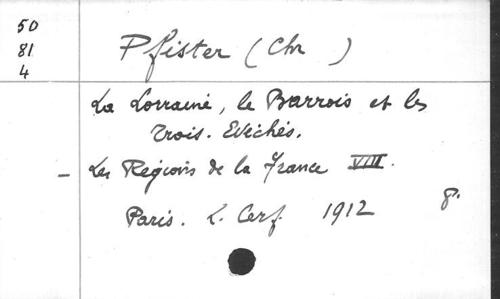 50
81
4
Pfister (Chr )
La Lorraine, le Barrois et les
Trois. Evêchés.
- Les Régions de la France VIII.
Paris. L. Cerf. 1912 8°.